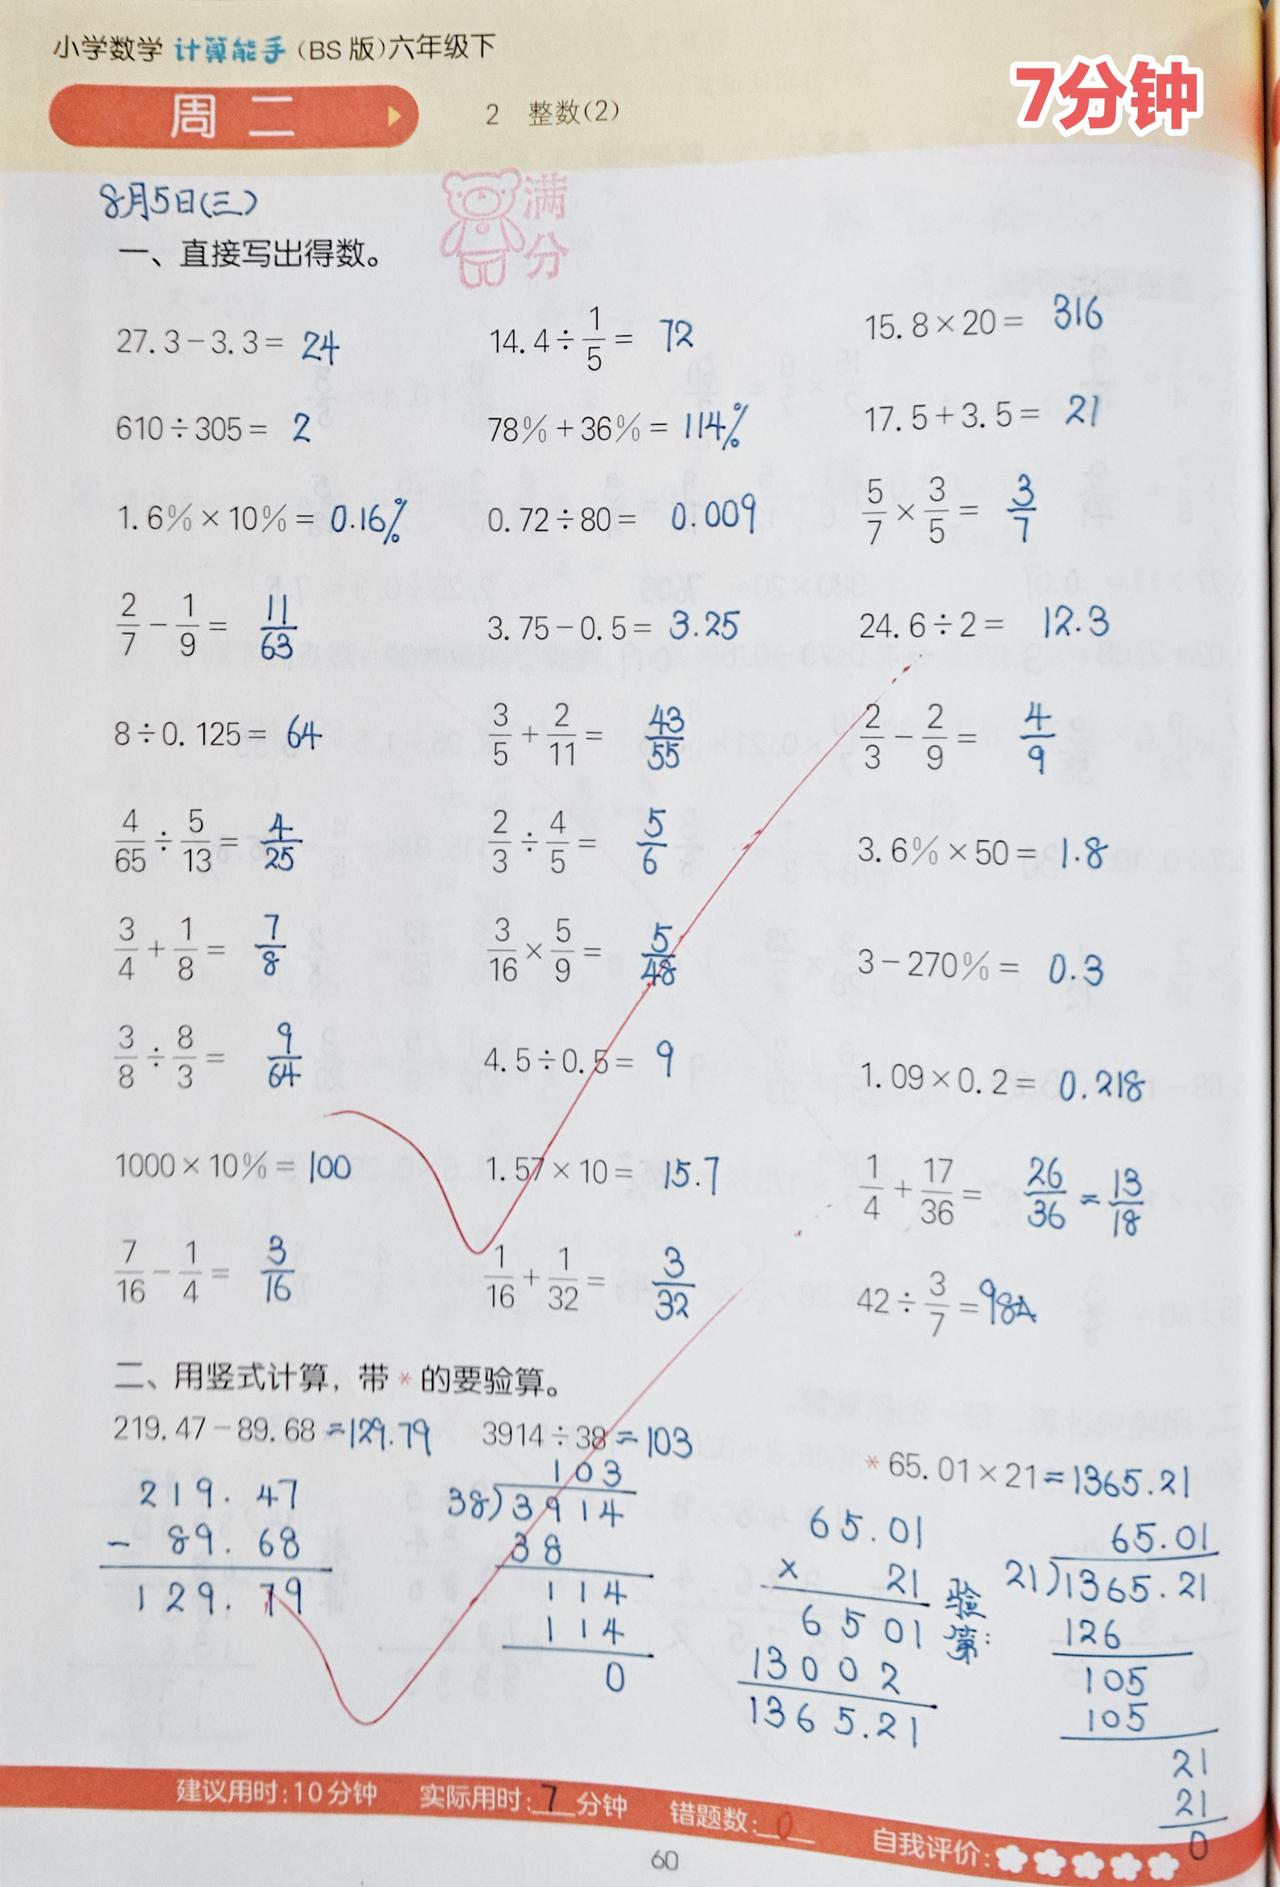 小学数学 计算能手 (BS版)六年级下
7分钟
周二
2 整数(2)
8月5日(三)
满分
一、直接写出得数。
27.3-3.3= 24 14.4÷1/5= 72 15.8×20= 316
610÷305= 2 78%+36%= 114% 17.5+3.5= 21
1.6%×10%= 0.16% 0.72÷80= 0.009 5/7×3/5= 3/7
2/7-1/9= 11/63 3.75-0.5= 3.25 24.6÷2= 12.3
8÷0.125= 64 3/5+2/11= 43/55 2/3-2/9= 4/9
4/65÷5/13= 4/25 2/3÷4/5= 5/6 3.6%×50= 1.8
3/4+1/8= 7/8 3/16×5/9= 5/48 3-270%= 0.3
3/8÷8/3= 9/64 4.5÷0.5= 9 1.09×0.2= 0.218
1000×10%= 100 1.57×10= 15.7 1/4+17/36= 26/36=13/18
7/16-1/4= 3/16 1/16+1/32= 3/32 42÷3/7= 98
二、用竖式计算，带*的要验算。
219.47-89.68=129.79 3914÷38=103 *65.01×21=1365.21
219.47
- 89.68
129.79
103
38)3914
38
114
114
0
65.01
× 21
6501
13002
1365.21
验算:
65.01
21)1365.21
126
105
105
21
21
0
建议用时:10分钟 实际用时:7分钟 错题数:0 自我评价:
60